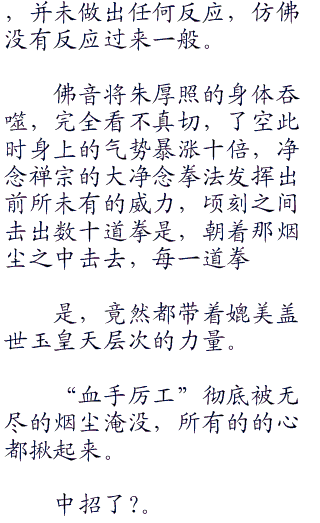 ，并未做出任何反应，仿佛
没有反应过来一般。
佛音将朱厚照的身体吞
噬，完全看不真切，了空此
时身上的气势暴涨十倍，净
念禅宗的大净念拳法发挥出
前所未有的威力，顷刻之间
击出数十道拳是，朝着那烟
尘之中击去，每一道拳
是，竟然都带着媲美盖
世玉皇天层次的力量。
“血手厉工”彻底被无
尽的烟尘淹没，所有的的心
都揪起来。
中招了?。